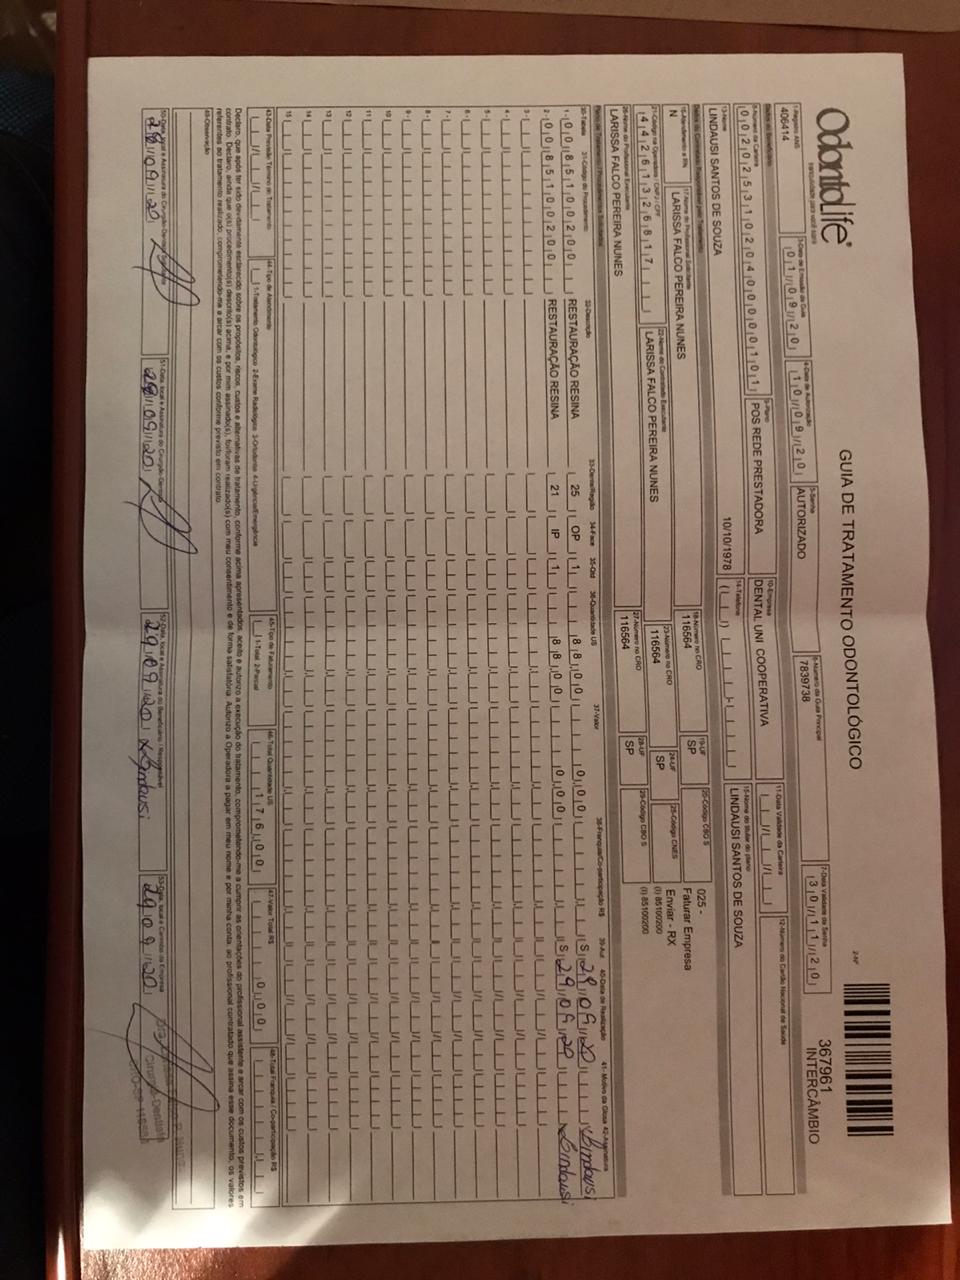 Odontolife®
tranquilidade para você sorrir
GUIA DE TRATAMENTO ODONTOLÓGICO
2-Nº
367961
INTERCÂMBIO
1-Registro ANS
406414
3-Data de Emissão da Guia
01/09/20
4-Data de Autorização
10/09/20
5-Senha
AUTORIZADO
6-Número da Guia Principal
7839738
7-Data Validade da Senha
30/11/20
Dados do Beneficiário
8-Número da Carteira
00202531020400000101
9-Plano
POS REDE PRESTADORA
10-Empresa
DENTAL UNI COOPERATIVA
11-Data Validade da Carteira
12-Número do Cartão Nacional de Saúde
13-Nome
LINDAUSI SANTOS DE SOUZA
10/10/1978
14-Telefone
15-Nome do titular do plano
LINDAUSI SANTOS DE SOUZA
Dados do Contratado Responsável pelo Tratamento
16-Atendimento a RN
N
17-Nome do Profissional Solicitante
LARISSA FALCO PEREIRA NUNES
18-Número no CRO
116564
19-UF
SP
20-Código CBO S
025 -
Faturar Empresa
Enviar - RX
(I) 85100200
(I) 85100200
21-Código na Operadora / CNPJ / CPF
44261326817
22-Nome do Contratado Executante
LARISSA FALCO PEREIRA NUNES
23-Número no CRO
116564
24-UF
SP
25-Código CNES
26-Nome do Profissional Executante
LARISSA FALCO PEREIRA NUNES
27-Número no CRO
116564
28-UF
SP
29-Código CBO S
Plano de Tratamento / Procedimentos Solicitados
30-Tabela 31-Código do Procedimento 32-Descrição 33-Dente/Região 34-Face 35-Qtd 36-Quantidade US 37-Valor 38-Franquia/Co-participação R$ 39-Aut 40-Data de Realização 41-Motivo da Glosa 42-Assinatura
1- 00 85100200 RESTAURAÇÃO RESINA 25 OP 1 88,00 0,00 S 29/09/20 Lindausi
2- 00 85100200 RESTAURAÇÃO RESINA 21 IP 1 88,00 0,00 S 29/09/20 Lindausi
3-
4-
5-
6-
7-
8-
9-
10
11
12
13
14
15
43-Data Previsão Término do Tratamento
44-Tipo de Atendimento
1-Tratamento Odontológico 2-Exame Radiológico 3-Ortodontia 4-Urgência/Emergência
45-Tipo de Faturamento
1-Total 2-Parcial
46-Total Quantidade US
176,00
47-Valor Total R$
0,00
48-Total Franquia / Co-participação R$
Declaro, que após ter sido devidamente esclarecido sobre os propósitos, riscos, custos e alternativas de tratamento, conforme acima apresentados, aceito e autorizo a execução do tratamento, comprometendo-me a cumprir as orientações do profissional assistente e arcar com os custos previstos em
contrato. Declaro, ainda que o(s) procedimento(s) descrito(s) acima, e por mim assinado(s), foi/foram realizado(s) com meu consentimento e de forma satisfatória. Autorizo a Operadora a pagar em meu nome e por minha conta, ao profissional contratado que assina esse documento, os valores
referentes ao tratamento realizado, comprometendo-me a arcar com os custos conforme previsto em contrato.
49-Observação
50-Data, local e Assinatura do Cirurgião-Dentista Solicitante
29/09/20
51-Data, local e Assinatura do Cirurgião-Dentista
29/09/20
52-Data, local e Assinatura do Beneficiário / Responsável
29/09/20 Lindausi
53-Data, local e Carimbo da Empresa
29/09/20
Cirurgiã-Dentista